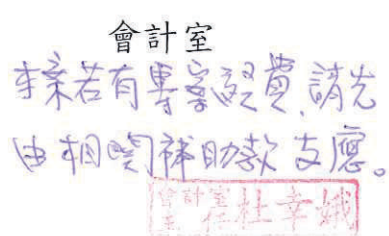 會計室
本案若有專案經費,請先
由相關補助款支應。
會計室
主任 杜幸娥